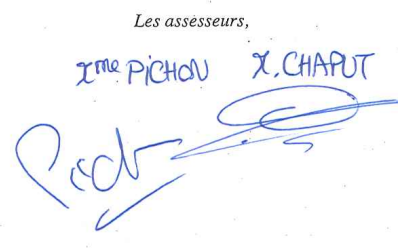 Les assesseurs,
Mme PICHON M. CHAPUT